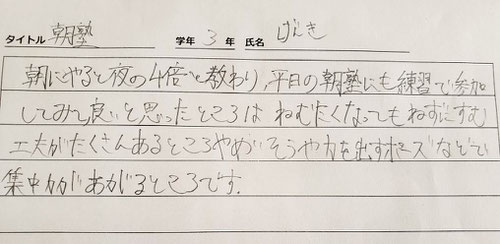 タイトル 朝塾 学年 3 年 氏名 げんき
朝にやると夜の4倍と教わり、平日の朝塾にも練習で参加
してみて良いと思ったところは ねむたくなってもねずにすむ
工夫がたくさんあるところやめいそうや力を出すポーズなどで
集中力があがるところです.